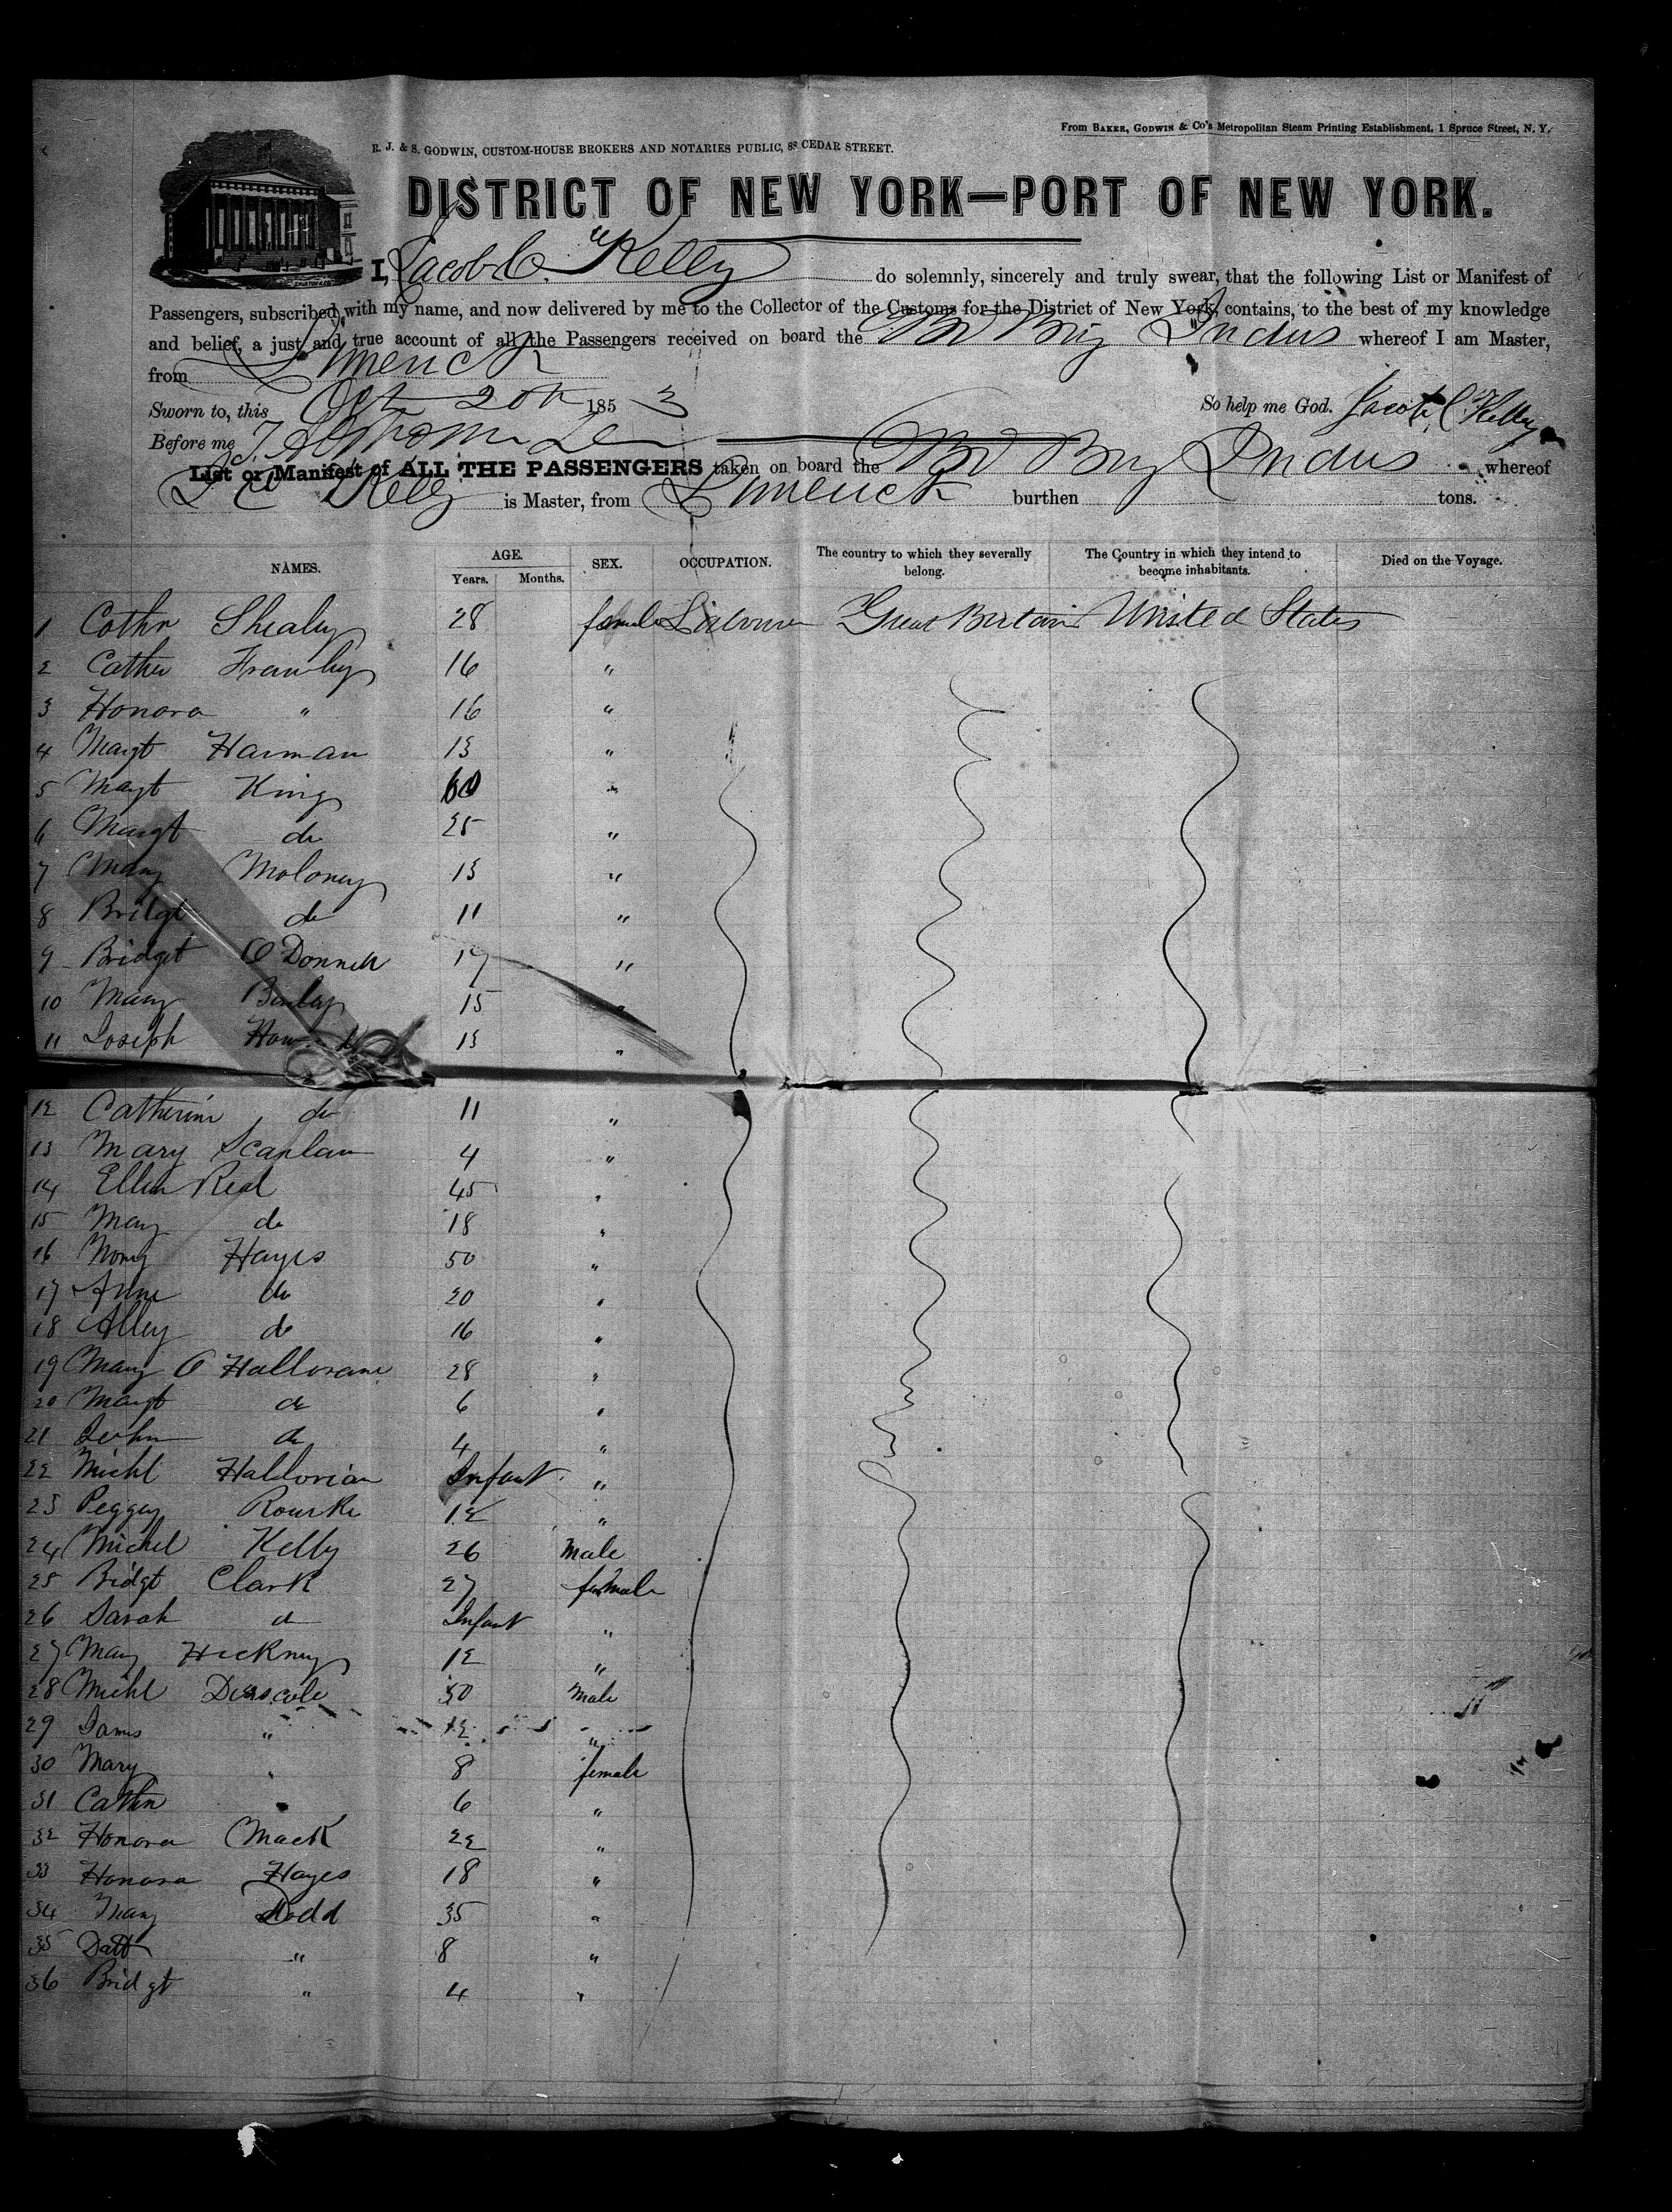 From BAKER, GODWIN & Co's Metropolitan Steam Printing Establishment, 1 Spruce Street, N. Y.
R. J. & S. GODWIN, CUSTOM-HOUSE BROKERS AND NOTARIES PUBLIC, 88 CEDAR STREET.
DISTRICT OF NEW YORK—PORT OF NEW YORK.
I, Jacob C Kelly do solemnly, sincerely and truly swear, that the following List or Manifest of
Passengers, subscribed with my name, and now delivered by me to the Collector of the Customs for the District of New York, contains, to the best of my knowledge
and belief, a just and true account of all the Passengers received on board the Br Brig Indus whereof I am Master,
from Limerick
Sworn to, this Oct 20th 1853 So help me God. Jacob C Kelly
Before me
List or Manifest of ALL THE PASSENGERS taken on board the Br Brig Indus whereof
J C Kelly is Master, from Limerick burthen tons.
NAMES. AGE. Years. Months. SEX. OCCUPATION. The country to which they severally belong. The Country in which they intend to become inhabitants. Died on the Voyage.
1 Cathn Shealy 28 female Great Britain United States
2 Cathn Frawley 16 "
3 Honora " 16 "
4 Margt Harman 13 "
5 Margt King 60 "
6 Margt do 25 "
7 Mary Moloney 13 "
8 Bridgt do 11 "
9 Bridget O Donnell 19 "
10 Mary 15 "
11 Joseph 13 "
12 Catherine do 11 "
13 Mary Scanlan 4 "
14 Ellen Real 45 "
15 Mary do 18 "
16 Hayes 50 "
17 Anne do 20 "
18 Alley do 16 "
19 Mary O Hallorane 28 "
20 Margt do 6 "
21 John do 4 "
22 Michl Halloran Infant "
23 Peggy Rourke 12 "
24 Michel Kelly 26 Male
25 Bidgt Clark 27 female
26 Sarah d Infant "
27 Mary Hickney 12 "
28 Michl Driscole 30 Male
29 James " 12 "
30 Mary " 8 female
31 Cathn " 6 "
32 Honora Mack 22 "
33 Honora Hayes 18 "
34 Mary Dodd 35 "
35 " 8 "
36 Bridgt " 4 "